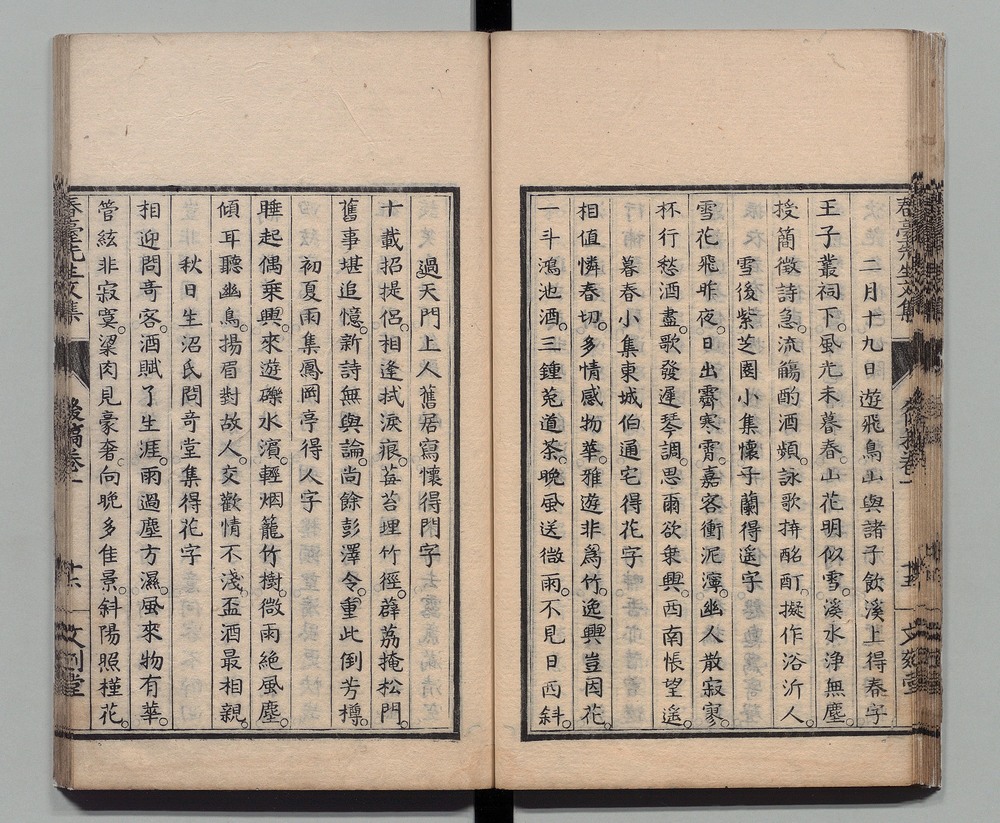 二月十九日遊飛鳥山與諸子飲溪上得春字
王子叢祠下。風光未暮春。山花明似雪。溪水浄無塵。
授簡徴詩急。流觴酌酒頻。詠歌拚酩酊。擬作浴沂人。
雪後紫芝園小集懷子蘭得遥字
雪花飛昨夜。日出霽寒霄。嘉客衝泥濘。幽人散寂寥。
杯行愁酒盡。歌發遲琴調。思爾欲乗興。西南悵望遥。
暮春小集東城伯通宅得花字
相值憐春切。多情感物華。雅遊非爲竹。逸興豈因花。
一斗鴻池酒。三鍾菟道茶。晩風送微雨。不見日西斜。
過天門上人舊居寫懷得門字
十載招提侶。相逢拭淚痕。莓苔埋竹徑。薜荔掩松門。
舊事堪追憶。新詩無與論。尚餘彭澤令。重此倒芳樽。
初夏雨集鳳岡亭得人字
睡起偶乗興。來遊礫水濱。輕烟籠竹樹。微雨絶風塵。
傾耳聽幽鳥。揚眉對故人。交歡情不淺。盃酒最相親。
秋日生沼氏問奇堂集得花字
相迎問奇客。酒賦了生涯。雨過塵方濕。風來物有華。
管絃非寂寞。梁肉見豪奢。向晩多佳景。斜陽照槿花。
春臺先生文集
後稿卷一